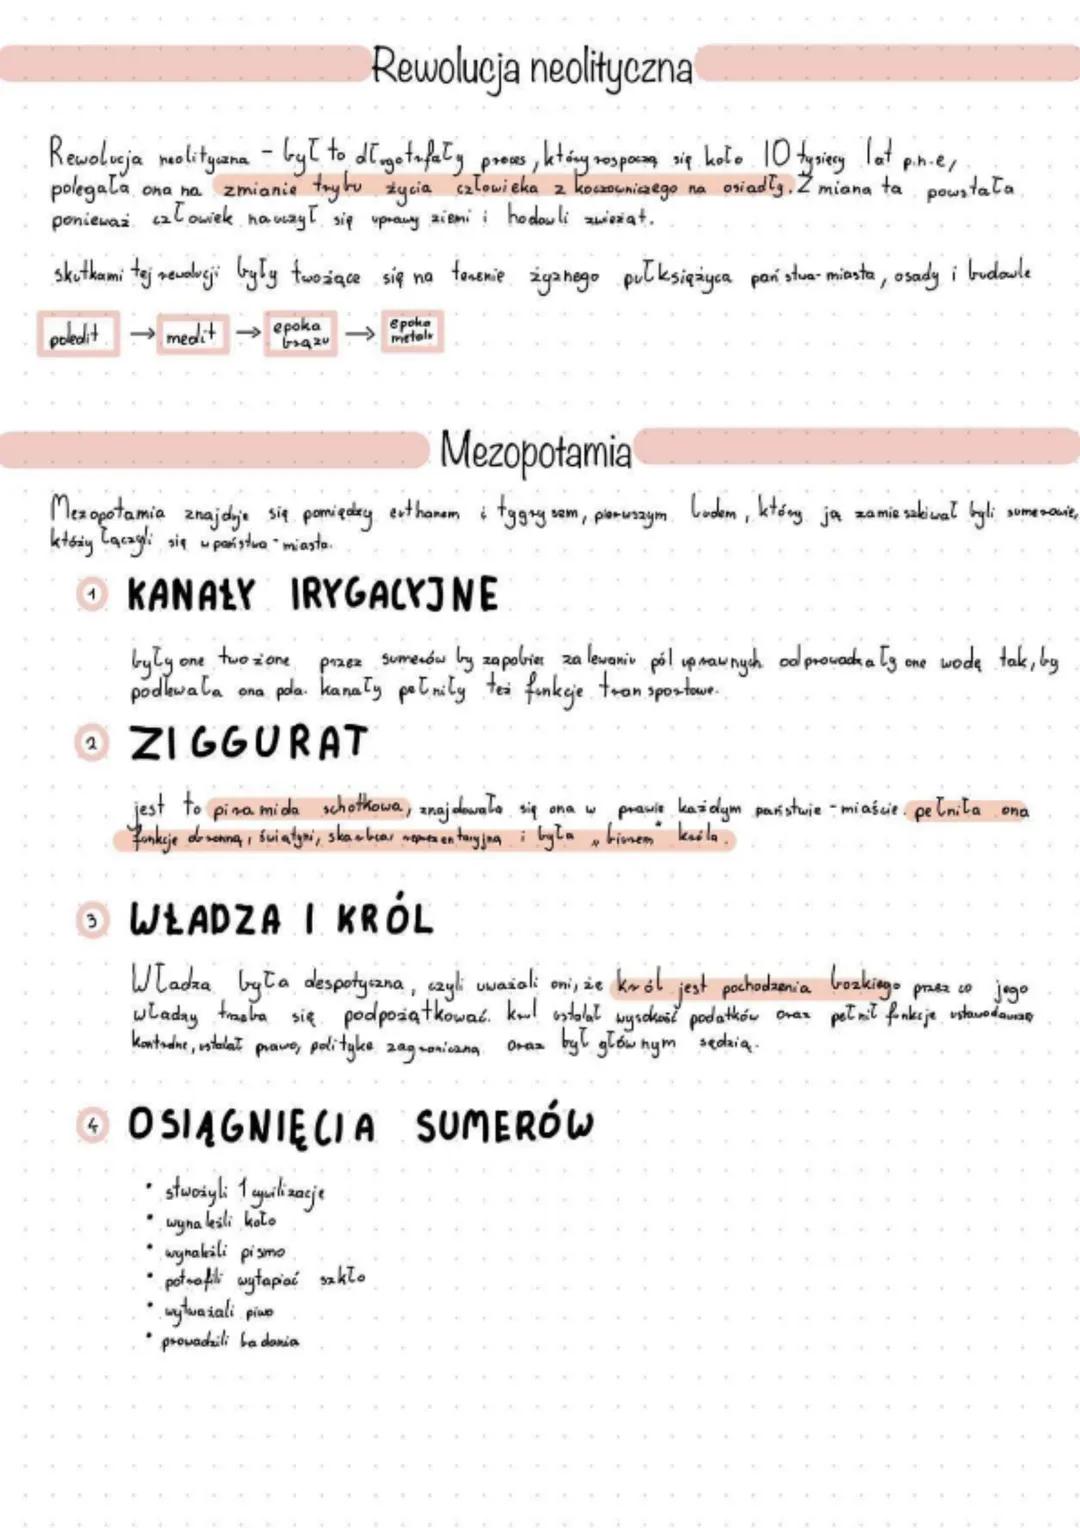 Rewolucja neolityczna
Rewolucja neolityczna - był to długotrfały proces, który rospoczą się koło 10 tysięcy lat p.n.e,
polegała ona na zmianie trybu życia człowieka z koczowniczego na osiadły. Zmiana ta powstała
ponieważ człowiek nauczył się uprawy ziemi i hodowli zwieżąt.
skutkami tej rewolucji były twożące się na terenie żyznego pułksiężyca państwa-miasta, osady i budowle
poledit → medit → epoka brązu → epoka metalu
Mezopotamia
Mezopotamia znajduje się pomiędzy eufhanem i tygrysem, pierwszym ludem, który ją zamieszkiwał byli sumerowie,
któży łączyli się w państwa-miasta.
1 KANAŁY IRYGACYJNE
były one twożone przez sumerów by zapobiec zalewaniu pól uprawnych odprowadzały one wodę tak, by
podlewała ona pola. kanały pełniły też funkcje transportowe.
2 ZIGGURAT
jest to piramida schotkowa, znajdowała się ona w prawie każdym państwie-mieście. pełniła ona
funkcje obronną, świątyni, skarbca, reprezentacyjną i była „biurem" króla.
3 WŁADZA I KRÓL
Władza była despotyczna, czyli uważali oni, że król jest pochodzenia bozkiego przez co jego
władzy trzeba się podpożątkować. krul ustalał wysokość podatków oraz pełnił funkcje ustawodawczą
kontrolne, ustalał prawo, polityke zagraniczną oraz był głównym sędzią.
4 OSIĄGNIĘCIA SUMERÓW
• stwożyli 1 cywilizacje
• wynaleśli koło
• wynaleźli pismo
• potrafili wytapiać szkło
• wytważali piwo
• prowadzili badania